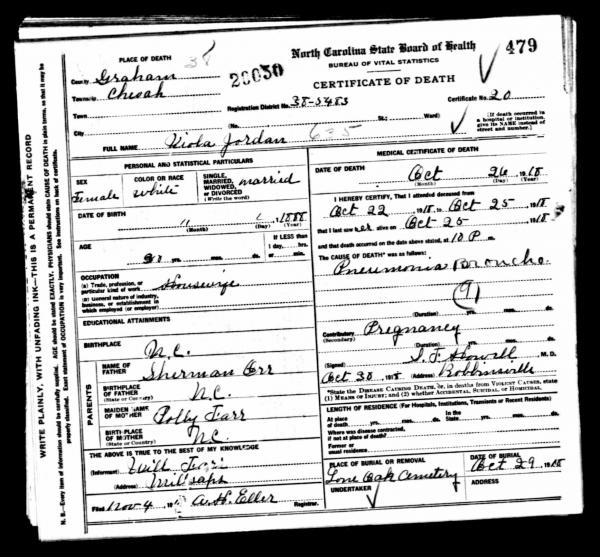 North Carolina State Board of Health
BUREAU OF VITAL STATISTICS
CERTIFICATE OF DEATH
479
PLACE OF DEATH 38
County Graham
Township Cheoah
20050
Registration District No. 38-5483
Certificate No. 20
Town
City
(No. St.; Ward)
[If death occurred in a hospital or institution, give its NAME instead of street and number.]
FULL NAME Viola Jordan 635
PERSONAL AND STATISTICAL PARTICULARS
SEX
Female
COLOR OR RACE
white
SINGLE, MARRIED, WIDOWED, OR DIVORCED
(Write the word)
married
DATE OF BIRTH 11 1888
(Month) (Day) (Year)
AGE
30 yrs. mos. ds.
IF LESS than
1 day, hrs.
or min.
OCCUPATION
(a) Trade, profession, or particular kind of work Housewife
(b) General nature of industry, business, or establishment in which employed (or employer)
EDUCATIONAL ATTAINMENTS
BIRTHPLACE N.C.
PARENTS
NAME OF FATHER Sherman Orr
BIRTHPLACE OF FATHER
(State or Country) N.C.
MAIDEN NAME OF MOTHER Polly Farr
BIRTHPLACE OF MOTHER
(State or Country) N.C.
THE ABOVE IS TRUE TO THE BEST OF MY KNOWLEDGE
(Informant) Will
(Address) Milsaps
Filed Nov 4 19 A. H. Eller Registrar.
MEDICAL CERTIFICATE OF DEATH
DATE OF DEATH Oct 26 1918
(Month) (Day) (Year)
I HEREBY CERTIFY, That I attended deceased from
Oct 22 1918 to Oct 25 1918
that I last saw her alive on Oct 25 1918
and that death occurred on the date above stated, at 10 P m.
The CAUSE OF DEATH* was as follows:
Pneumonia Broncho.
(9)
(Duration) yrs. mos. ds.
Contributory Pregnancy
(Secondary)
(Duration) yrs. mos. ds.
(Signed) M. D.
Oct 30 1918 (Address) Robbinsville
*State the DISEASE CAUSING DEATH, or, in deaths from VIOLENT CAUSES, state (1) MEANS OF INJURY; and (2) whether ACCIDENTAL, SUICIDAL, or HOMICIDAL.
LENGTH OF RESIDENCE (For Hospitals, Institutions, Transients or Recent Residents)
At place of death yrs. mos. ds. In the State yrs. mos. ds.
Where was disease contracted, if not at place of death?
Former or usual residence
PLACE OF BURIAL OR REMOVAL
Lone Oak Cemetery
DATE OF BURIAL
Oct 29 1918
UNDERTAKER
ADDRESS
WRITE PLAINLY, WITH UNFADING INK—THIS IS A PERMANENT RECORD
N. B.—Every item of information should be carefully supplied. AGE should be stated EXACTLY. PHYSICIANS should state CAUSE OF DEATH in plain terms, so that it may be properly classified. Exact statement of OCCUPATION is very important. See instructions on back of certificate.